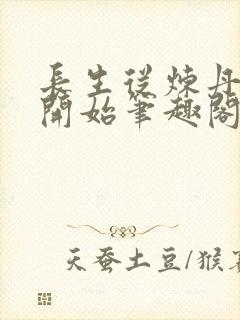 長生從煉丹
開始筆趣閣
天蚕土豆/猴